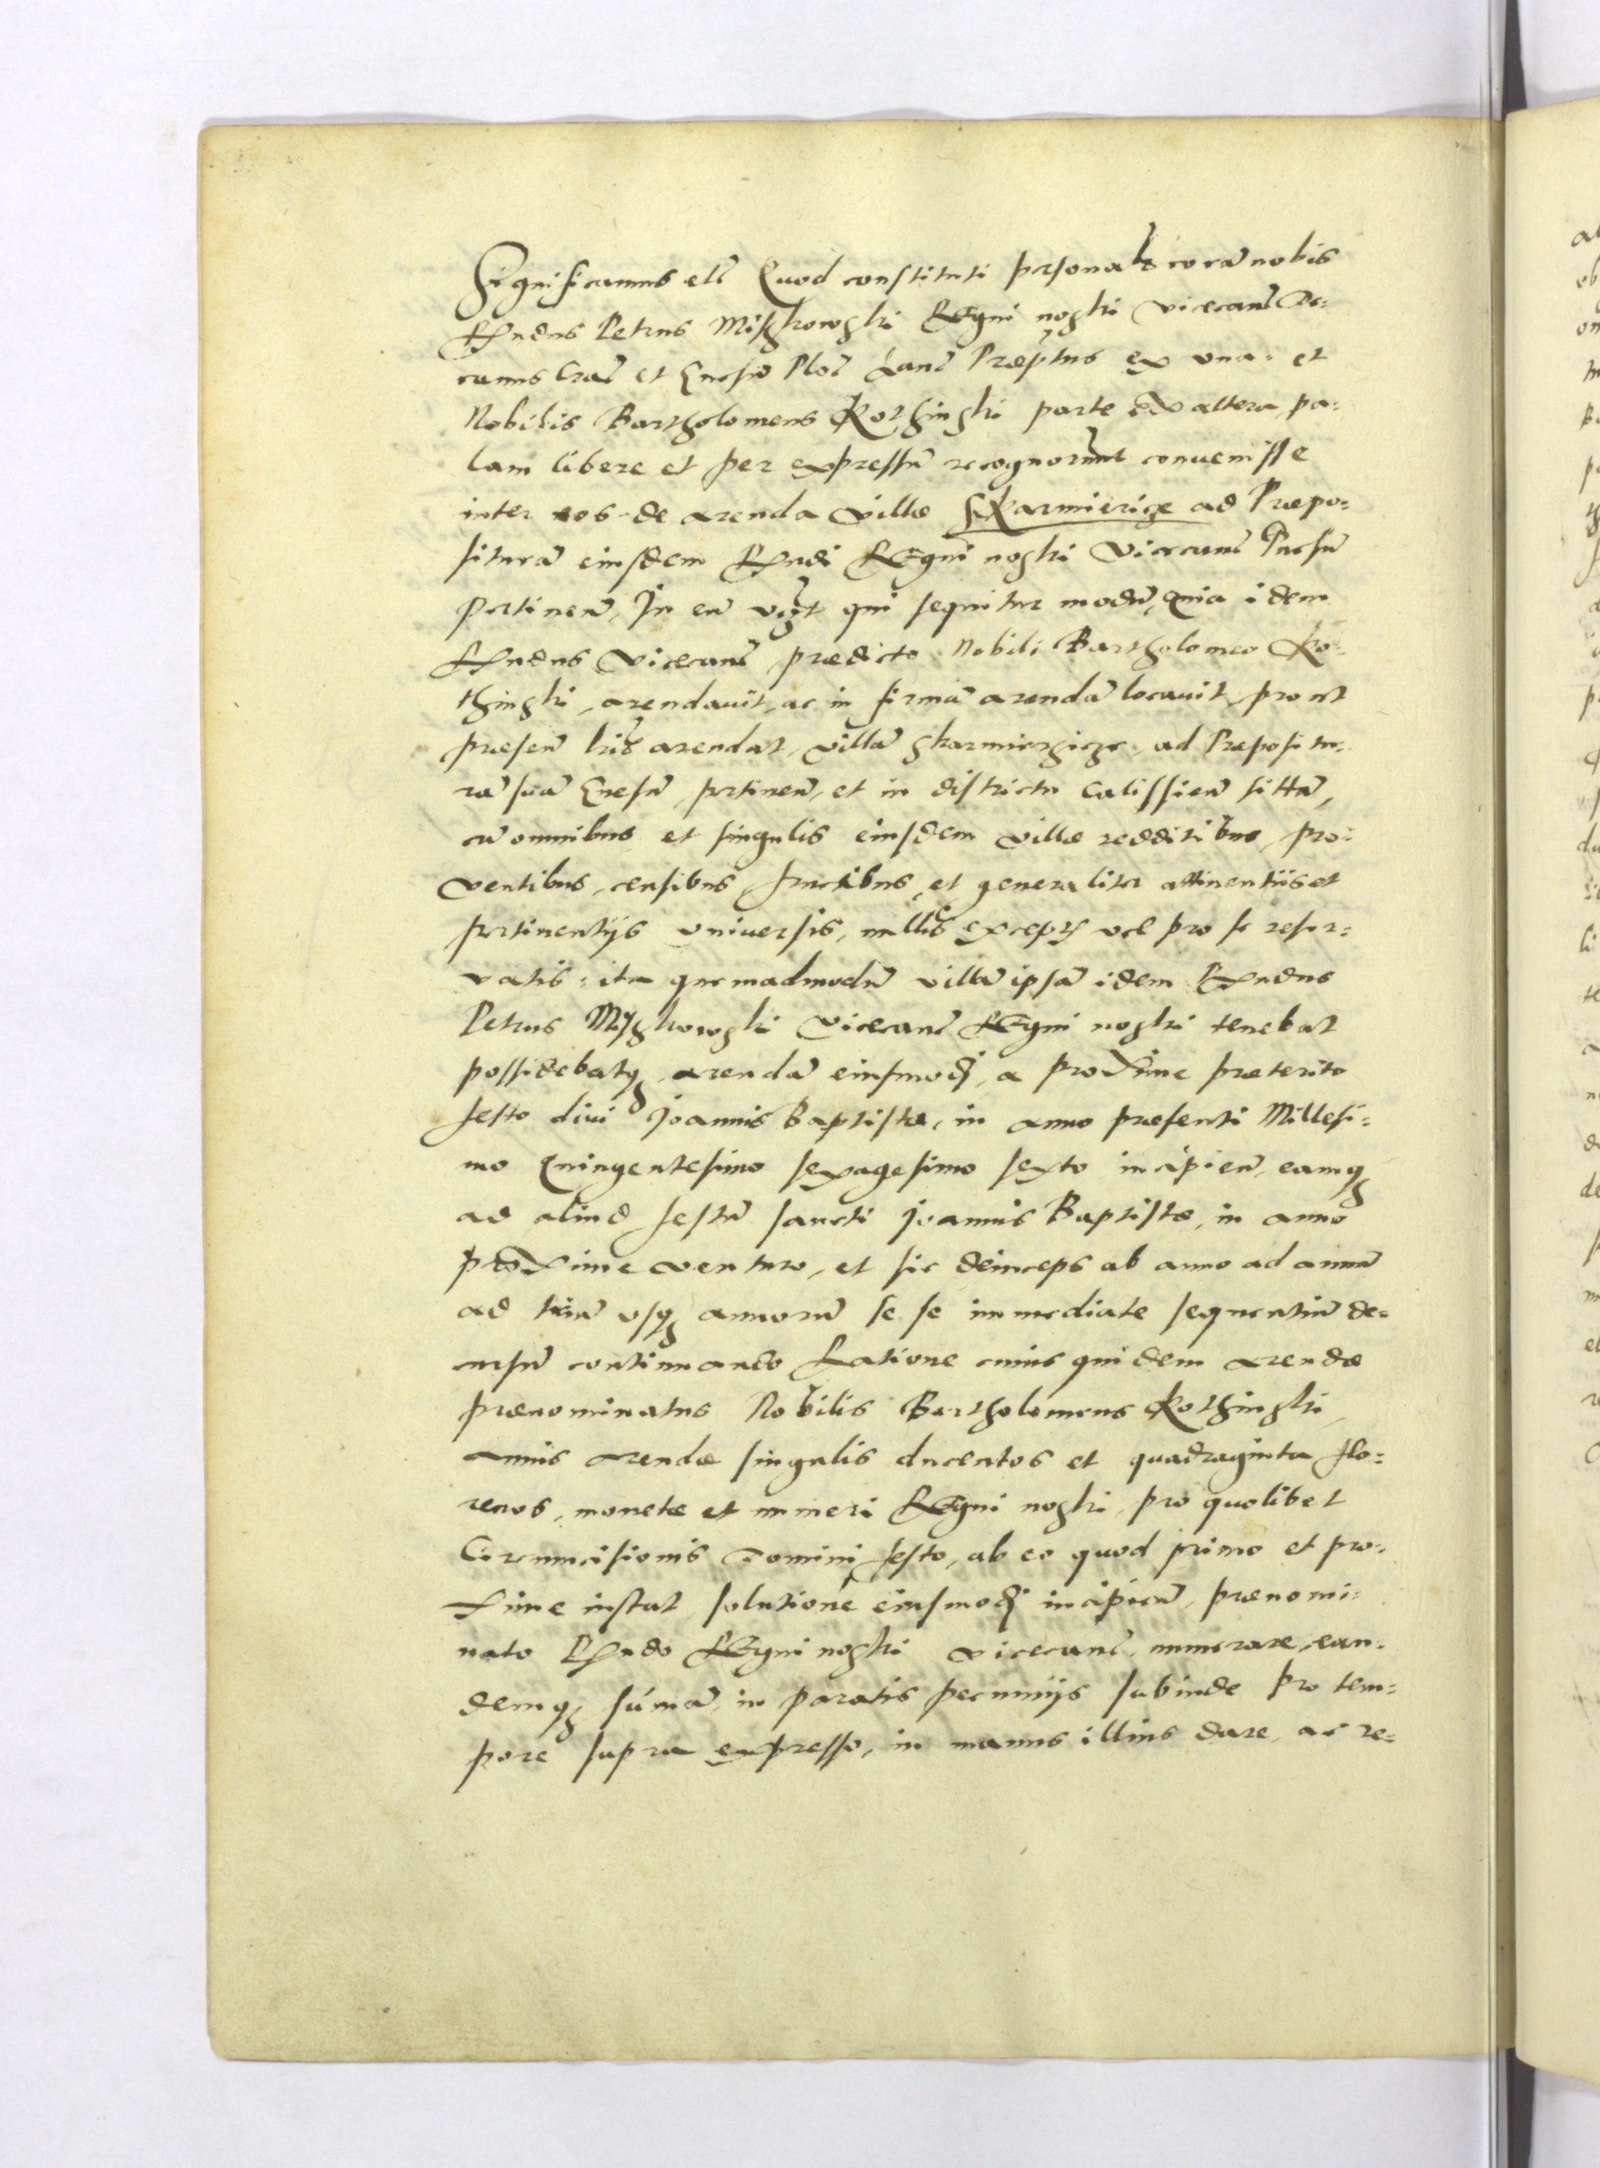 Significamus etc̃ Quod constituti personalr̃ corã nobis
Rñdus Petrus Mißkowski Regni nostri Vicecanc̃ De:
canus Crac̃ et Gnesñ Ploc̃ Lanc̃ Præptus ex vna: et
Nobilis Bartholomeus Kothinski parte ex altera, pa:
lam libere et per expressũ recognorunt convenisse
inter eos de arenda villæ Skarmierice ad Præpo:
siturã eiusdem Rñdi Regni nostri Vicecanc̃ Gnesñ
pertineñ. In eũ vꝫt qui sequitur modũ, Quia idem
Rñdus Vicecanc̃ prædicto Nobili Bartholomeo Ko:
thinski, arendauit, ac in firmã arendã locauit, prout
præseñ lris arendat, villã Skarmierzicze, ad Præpositu:
rã suã Gnesñ pertineñ, et in districtu Calissieñ sittã,
cũ omnibus et singulis eiusdem villæ redditibus, pro:
ventibus, censibus, fructibus, et generaliter attinentiis et
pertinentijs vniuersis, nullis exceptis vel pro se reser:
vatis: ita quemadmodũ villã ipsã idem Rñdus
Petrus Myskowski Vicecanc̃ Regni nostri tenebat
possidebatq̃, arendã eiusmodi, a proxime præterito
festo diui Joannis Baptistæ, in anno præsenti Millesi:
mo Quingentesimo sexagesimo sexto incipieñ, eamq̃
ad aliud festũ sancti Joannis Baptistæ, in anno
proxime venturo, et sic deinceps ab anno ad annũ
ad triũ vsq̃ annorũ se se immediate sequentiũ de:
cursũ continuando Ratione cuius quidem arendæ
prænominatus Nobilis Bartholomeus Kothinski
annis arendæ singulis ducentos et quadraginta flo:
renos, monetæ et numeri Regni nostri, pro quolibet
Circumcisionis Domini festo, ab eo quod primo et pro:
xime instat solutionẽ eiusmodi incipieñ, prænomi:
nato Rñdo Regni nostri vicecanc̃ numerare, ean:
demq̃ sum̃ã in paratis pecunijs subinde pro tem:
pore supra expresso, in manus illius dare, ac re: